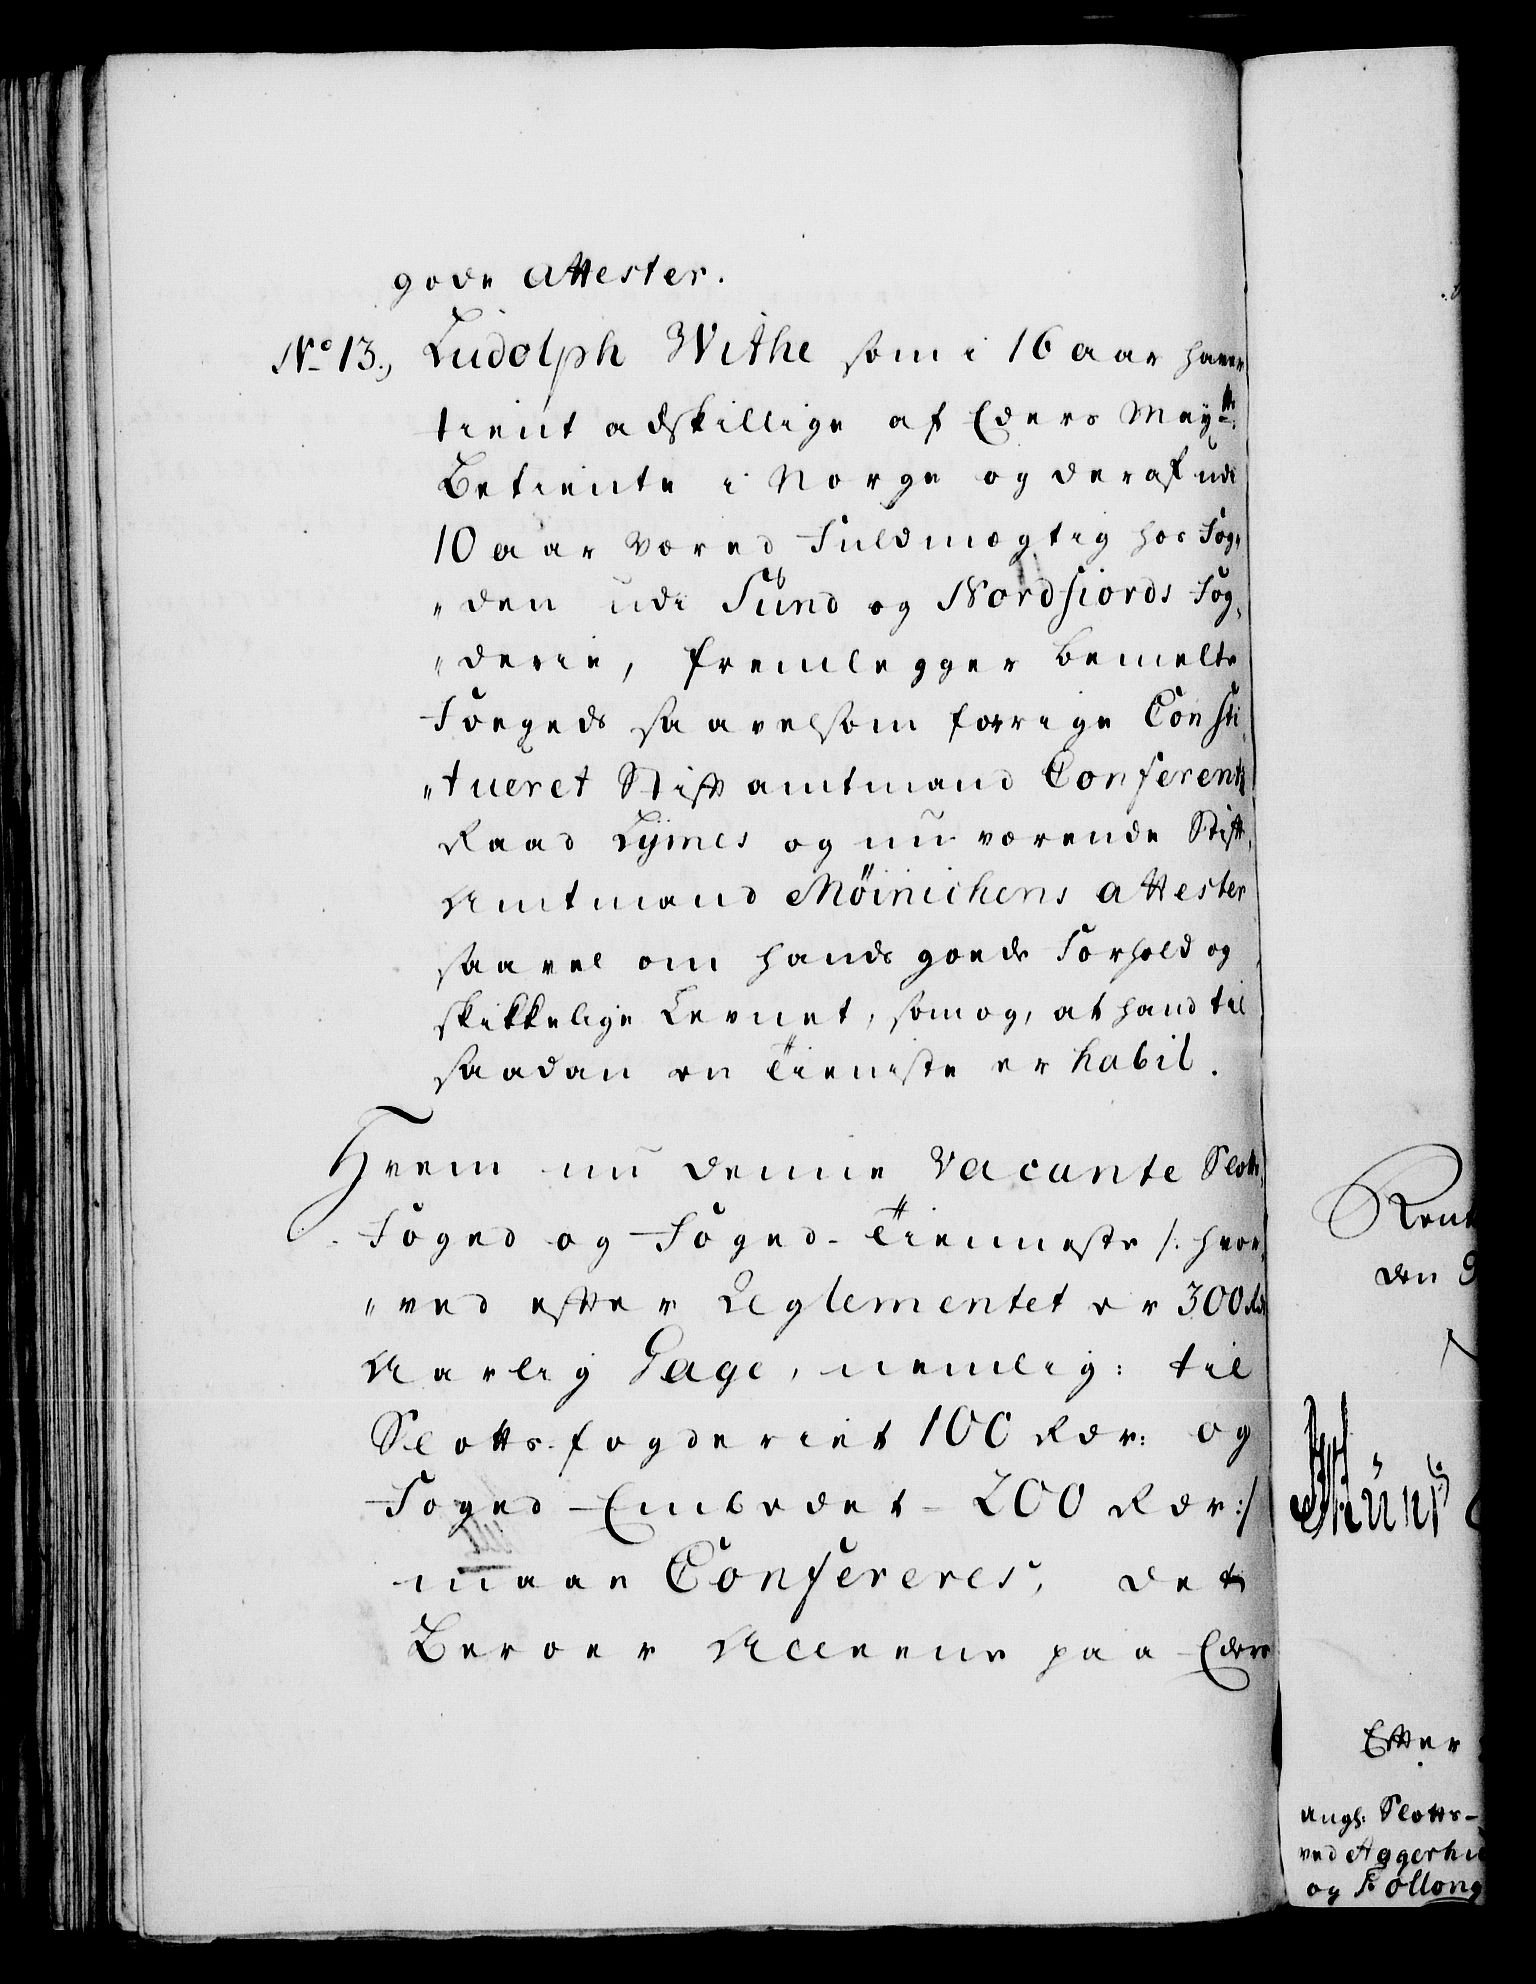 gode attester.
No 13., Ludolph Withe som i 16 aar haver
tient adskillige af Eders Mayts:
Betiente i Norge og deraf udi
10 aar væred Fuldmægtig hos Fog,
"den udi Sund og Nordfiords Fog,
"derie, fremlegger bemelte
Fogeds saavelsom forrige Consti,
"tueret Stiftamtmand Conferentz
Raad Lÿmes og nu værende Stift,
Amtmand Möinichens attester
saavel om hands goede Forhold og
skikkelige Levnet, som og, at hand til
saadan en Tieniste er habil.
Hvem nu denne vacante Slotts,
Foged og Foged-Tienneste /: hvor,
"ved efter Reglementet er 300 Rdr
Aarlig Gage, nemlig: til
Slotts-fogderiet 100 Rdr: og
Foged-Embedet - 200 Rdr :/
maae Confereres, det
Beroer Alleene paa Eders
Rent
den 9
Etter
angl: Slotts-
ved Aggerhu
og Follong